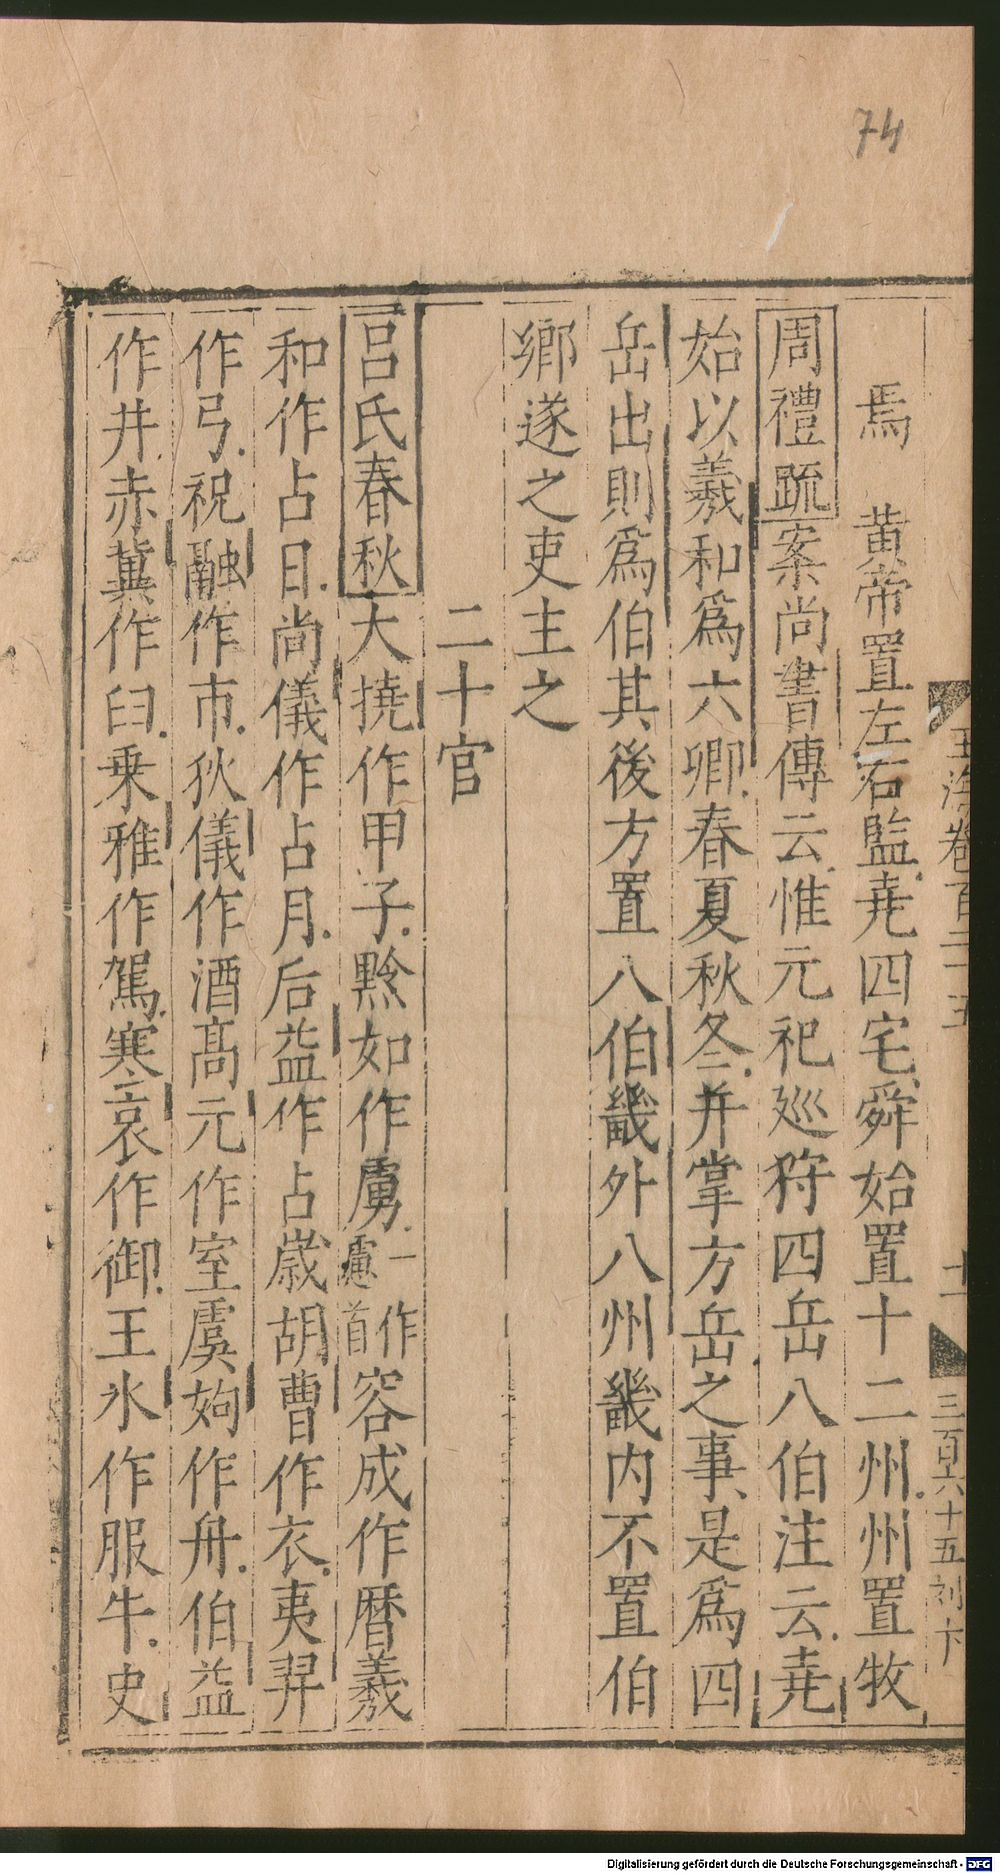 74
玉海卷百二十五
十一
三百六十五 刘卞
焉 黄帝置左右監堯四宅舜始置十二州州置牧
周禮疏案尚書傳云惟元祀廵狩四岳八伯注云堯
始以羲和爲六卿春夏秋冬并掌方岳之事是爲四
岳出則爲伯其後方置八伯畿外八州畿内不置伯
鄉遂之吏主之
二十官
吕氏春秋大撓作甲子黔如作虜一作慮首容成作暦羲
和作占日尚儀作占月后益作占歳胡曹作衣夷羿
作弓祝融作市狄儀作酒髙元作室虞姁作舟伯益
作井赤冀作臼乗雅作駕寒哀作御王氷作服牛史
Digitalisierung gefördert durch die Deutsche Forschungsgemeinschaft - DFG